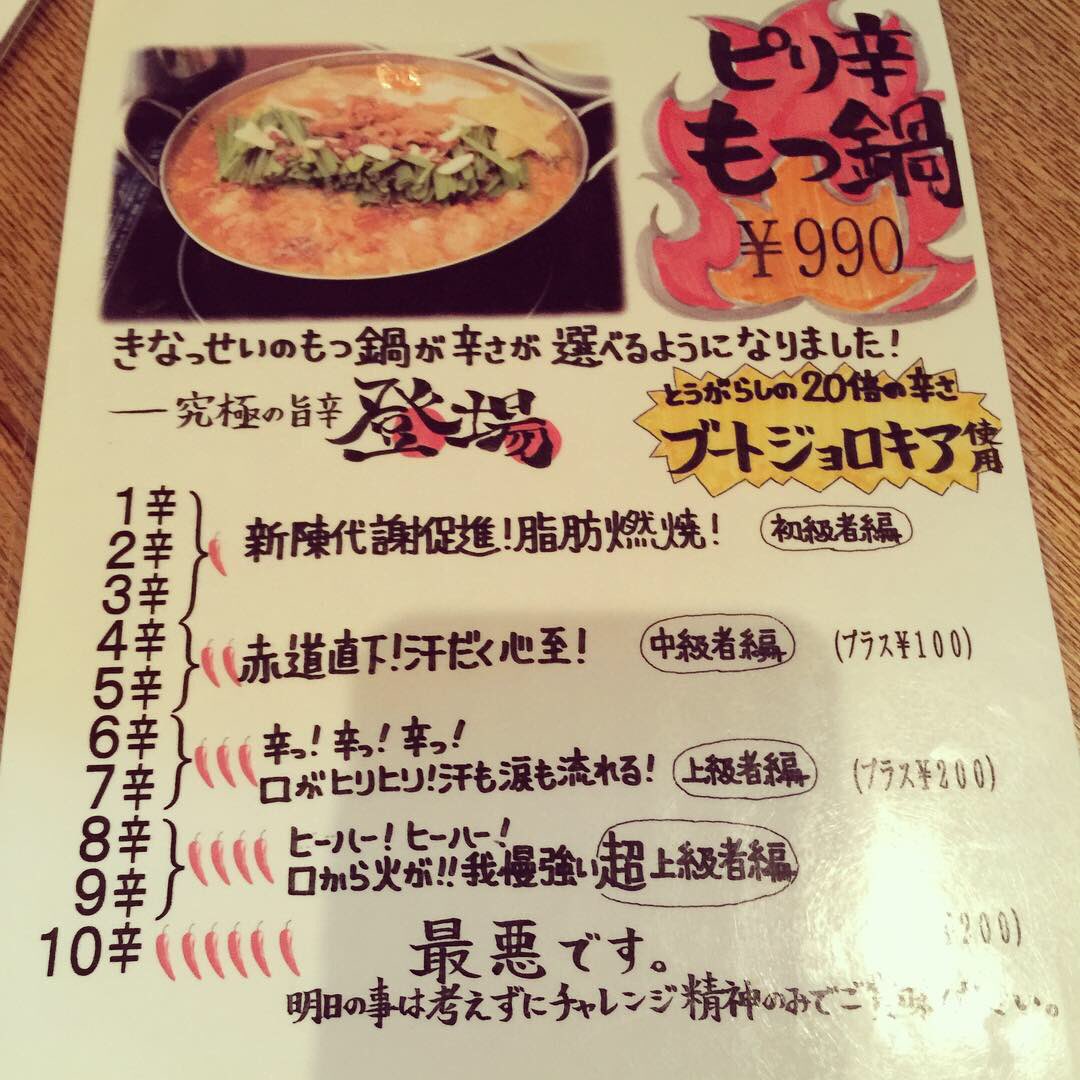 ピリ辛
もつ鍋
￥990
きなっせいのもつ鍋が辛さが選べるようになりました！
―究極の旨辛登場
とうがらしの20倍の辛さ
ブートジョロキア使用
1辛
2辛
3辛
新陳代謝促進！脂肪燃焼！ 初級者編
4辛
5辛
赤道直下！汗だく必至！ 中級者編 (プラス￥100)
6辛
7辛
辛っ！辛っ！辛っ！
口がヒリヒリ！汗も涙も流れる！ 上級者編 (プラス￥200)
8辛
9辛
ヒーハー！ヒーハー！
口から火が！！我慢強い超上級者編
￥200)
10辛
最悪です。
明日の事は考えずにチャレンジ精神のみでご い。